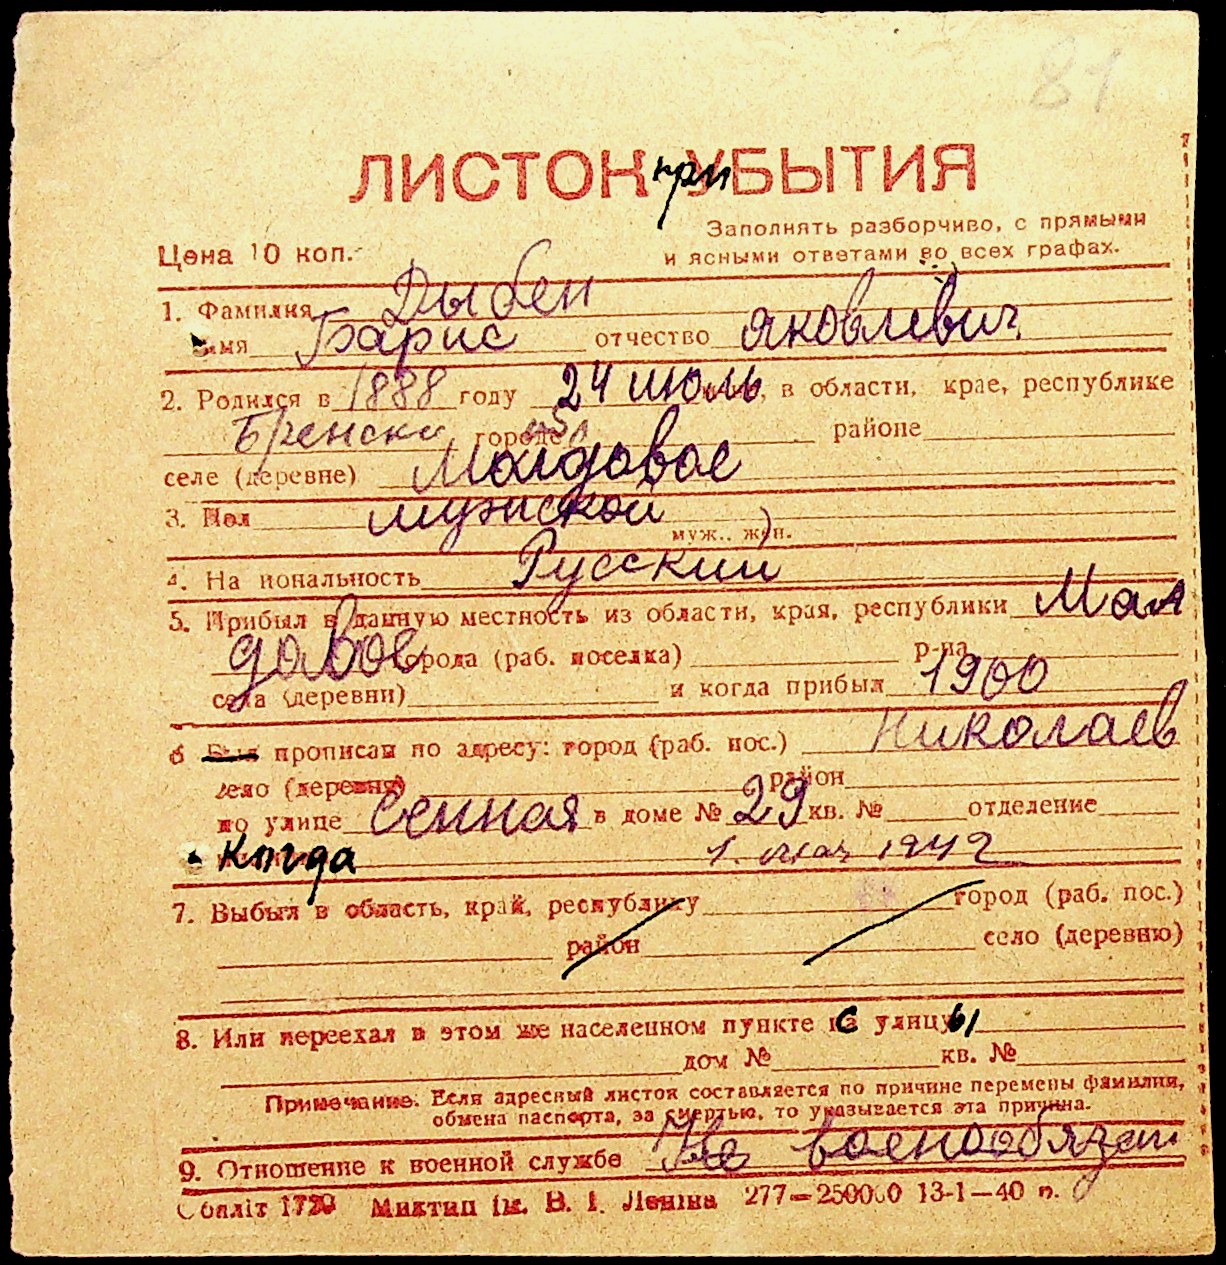 81
ЛИСТОК при УБЫТИЯ
Заполнять разборчиво, с прямыми
Цена 10 коп. и ясными ответами во всех графах.
1. Фамилия Дыбен
имя Барис отчество Яковлевич
2. Родился в 1888 году 24 июль, в области, крае, республике
Бренски городе районе
селе (деревне) Малдавое
3. Пол мужской
муж., жен.
4. Национальность Русский
5. Прибыл в данную местность из области, края, республики Мал
давое города (раб. поселка) р-на
села (деревни) и когда прибыл 1900
6 Был прописан по адресу: город (раб. пос.) Николаев
село (деревня) район
по улице Сенная в доме № 29 кв. № отделение
Когда 1. мая 1942
7. Выбыл в область, край, республику город (раб. пос.)
район село (деревню)
8. Или переехал в этом же населенном пункте с улицы
дом № кв. №
Примечание. Если адресный листок составляется по причине перемены фамилии,
обмена паспорта, за смертью, то указывается эта причина.
9. Отношение к военной службе Не военообязан
Облліт 1720 Миктип ім. В. І. Леніна 277—250000 13-1—40 п.